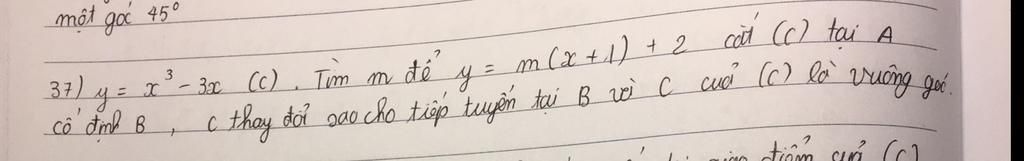 một góc 45°
37) y = x³ - 3x (C). Tìm m để y = m(x+1) + 2 cắt (C) tại A
cố định B, C thay đổi sao cho tiếp tuyến tại B và C cuả (C) là vuông góc.
điểm cuả (C)